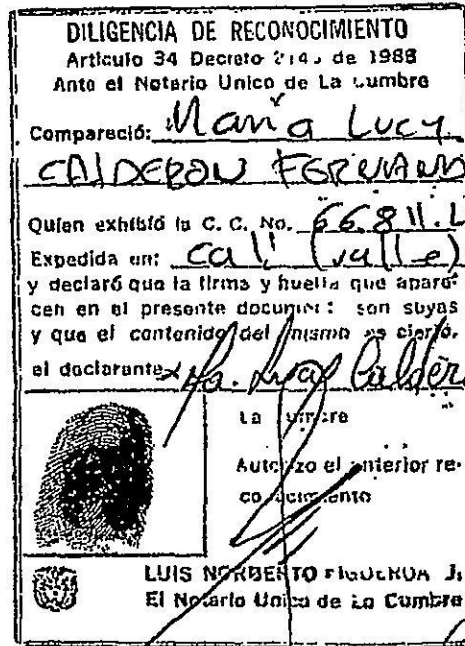 DILIGENCIA DE RECONOCIMIENTO
Articulo 34 Decreto 2145 de 1988
Ante el Notario Unico de La Cumbre
Compareció: Maria Lucy
CALDERON FERNAND
Quien exhibió la C. C. No. 66.811.
Expedida en: Cali (valle)
y declaró que la firma y huella que apare-
cen en el presente documento: son suyas
y que el contenido del mismo es cierto.
el declarante x Ma. Lucy Calderó
La Cumbre
Autorizo el anterior re-
conocimiento
LUIS NORBERTO FIGUEROA J.
El Notario Unico de La Cumbre